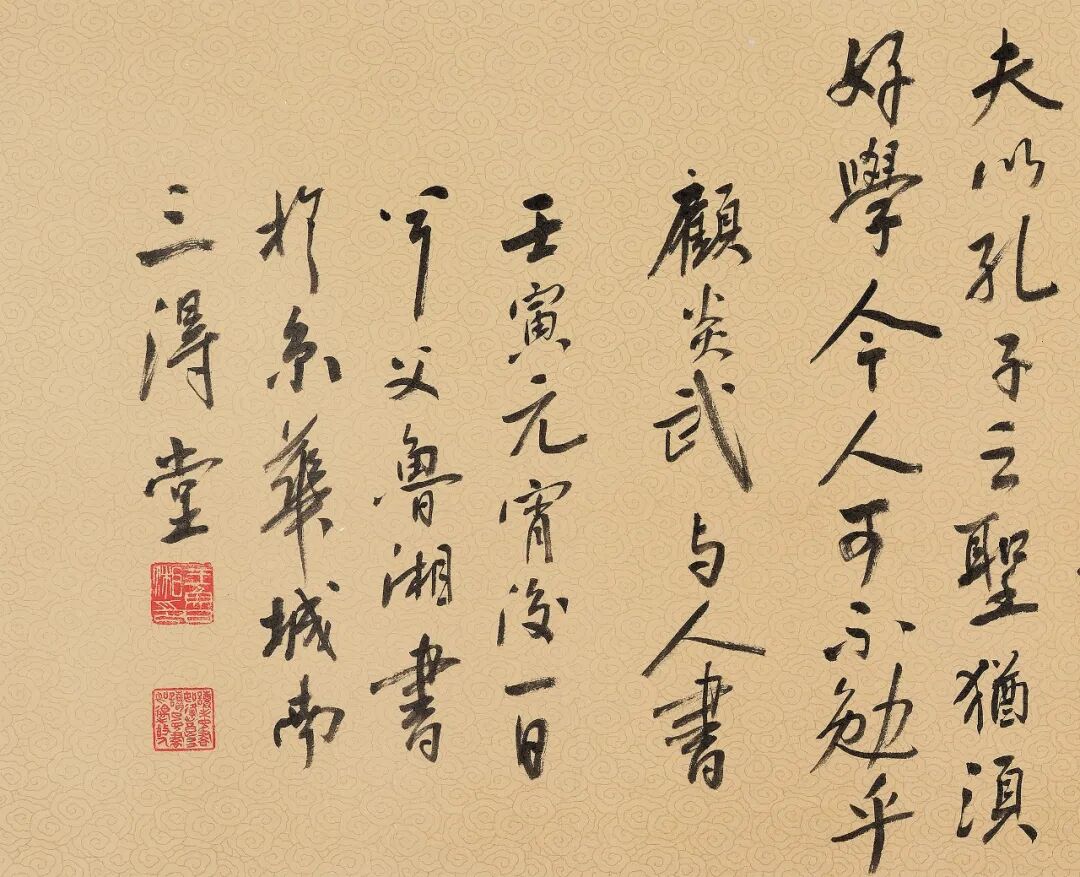 夫以孔子之聖猶須
好學今人可不勉乎
顧炎武 与人書
壬寅元宵後一日
父魯湘書
於京華城南
三得堂